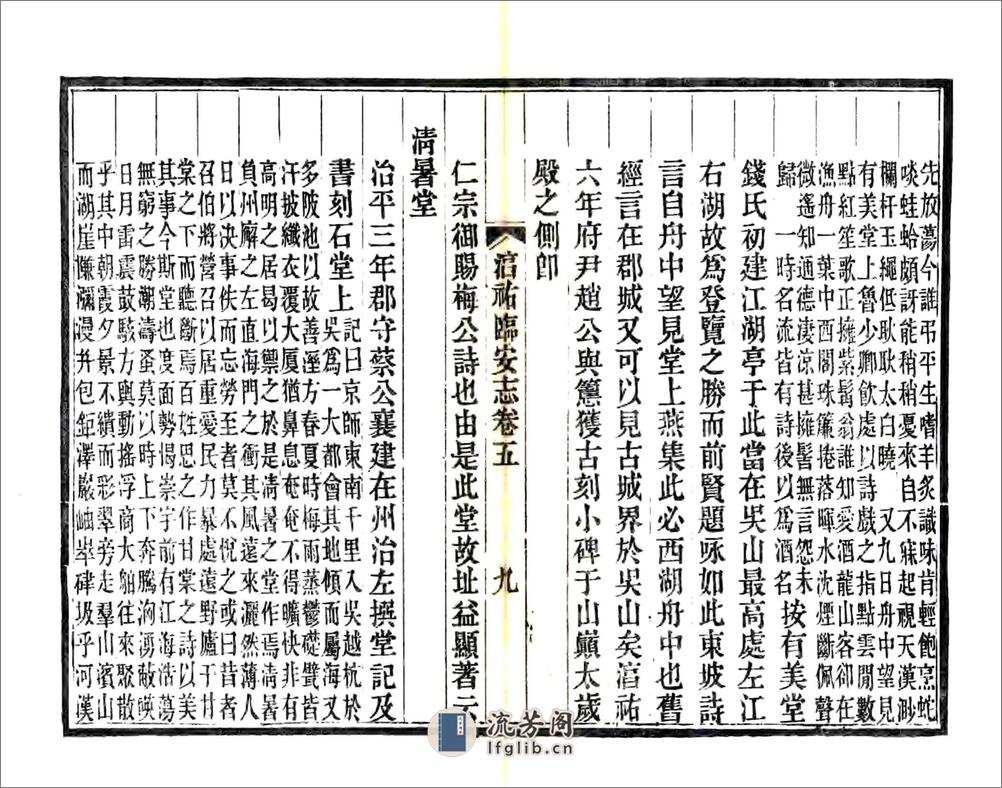 先放蕩今誰弔平生嗜羊炙識味肯輕飽烹蛇
啖蛙蛤頗訝能稍稍憂來自不寐起視天漢渺
欄杆玉繩低耿耿太白曉　又九日舟中望見
有美堂上魯少卿飲處以詩戲之指點雲閒數
點紅笙歌正擁紫髯翁誰知愛酒龍山客卻在
漁舟一葉中西閣珠簾捲落暉水沈煙斷佩聲
微遙知通德淒涼甚擁髻無言怨未
歸　一時名流皆有詩後以爲酒名按有美堂
錢氏初建江湖亭于此當在吳山最高處左江
右湖故爲登覽之勝而前賢題咏如此東坡詩
言自舟中望見堂上燕集此必西湖舟中也舊
經言在郡城又可以見古城界於吳山矣淳祐
六年府尹趙公與𥲅獲古刻小碑于山巔太歲
殿之側卽
淳祐臨安志卷五
九
仁宗御賜梅公詩也由是此堂故址益顯著云
淸暑堂
治平三年郡守蔡公襄建在州治左撰堂記及
書刻石堂上記曰京師東南千里入吳越杭於
吳爲一大都會其地傾而屬海又
多陂池以故善溼方春夏時梅雨蒸鬱礎甓皆
汗披纖衣覆大厦猶鼻息奄奄不得曠快非有
高明之居曷以禦之於是淸暑之堂作焉淸
負州廨之左直海門之衝其風遠來灑然薄人
日以決事佚而忘勞至者莫不悅之或曰昔者
召伯將營召以居重愛民力暴處遠野廬于甘
棠之下而聽斷焉百姓思之作甘棠之詩以美
其事今斯堂也度面勢揭崇宇前有江海浩蕩
無窮之勝潮濤蚤莫以時上下奔騰洶湧敲暎
日月雷震鼓駭方輿動搖浮商大舶往來聚散
乎其中朝霞夕景不繢而彩翠旁走羣山濱山
而湖崖慊瀰漫幷包鉅澤巖岫崒硉圾乎河漢